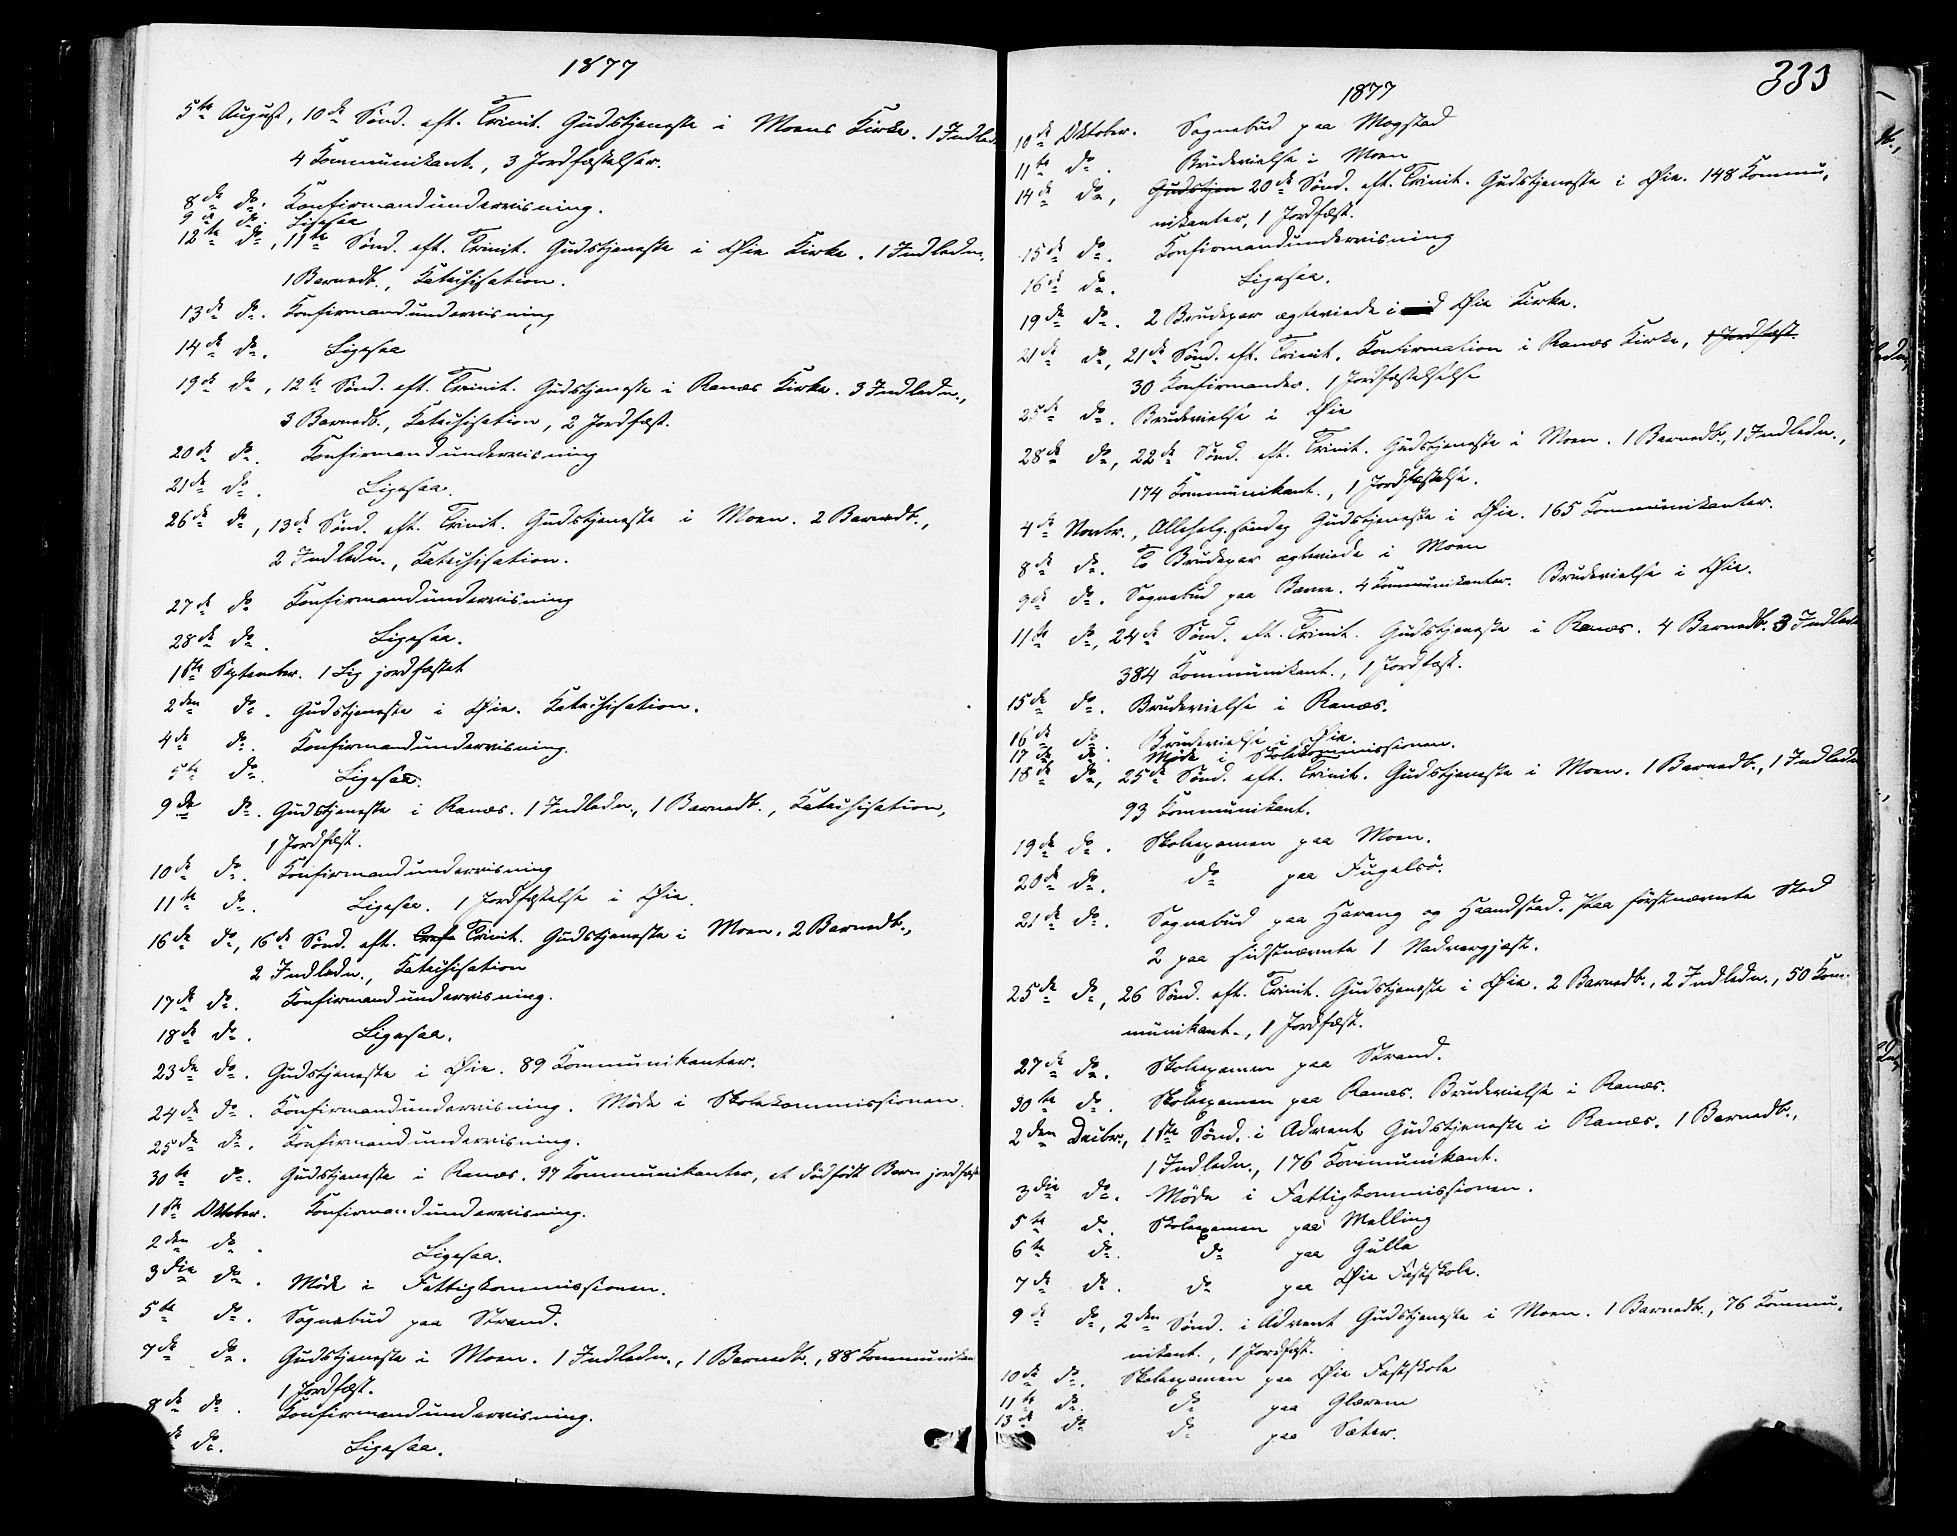 1877
5te August, 10de Sönd. eft. Trinit. Gudstjeneste i Moens Kirke. 1 Indled.
4 Kommunikant., 3 Jordfæstelser.
8de do. Konfirmandundervisning.
9de do. Ligesaa
12te do, 11te Sönd. eft. Trinit. Gudstjeneste i Øie Kirke. 1 Indledn.
1 Barnedb., Katechisation.
13de do. Konfirmandundervisning
14de do. Ligesaa
19de do, 12te Sönd. eft. Trinit. Gudstjeneste i Ranæs Kirke. 3 Indledn.,
3 Barnedb., Katechisation, 2 Jordfæst.
20de do. Konfirmandundervisning
21de do. Ligesaa.
26de do, 13de Sönd. eft. Trinit. Gudstjeneste i Moen. 2 Barnedb.,
2 Indledn., Katechisation.
27de do Konfirmandundervisning
28de do. Ligesaa.
1ste September. 1 Lig jordfæstet
2den do. Gudstjeneste i Øie. Katechisation.
4de do. Konfirmandundervisning.
5te do. Ligesaa.
9de do. Gudstjeneste i Ranæs. 1 Indledn., 1 Barnedb., Katechisation,
1 Jordfæst.
10de do. Konfirmandundervisning
11te do. Ligesaa. 1 Jordfæstelse i Øie.
16de do, 16de Sönd. eft. Trinit. Gudstjeneste i Moen. 2 Barnedb.,
2 Indledn., Katechisation
17de do. Konfirmandundervisning.
18de do. Ligesaa.
23de do. Gudstjeneste i Øie. 89 Kommunikanter.
24de do. Konfirmandundervisning. Möde i Skolekommissionen.
25de do. Konfirmandundervisning.
30te do. Gudstjeneste i Ranæs. 97 Kommunikanter, et dödfödt Barn jordfæst
1ste Oktber. Konfirmandundervisning.
2den do. Ligesaa.
3die do. Möde i Fattigkommissionen.
5te do. Sognebud paa Strand.
7de do. Gudstjeneste i Moen. 1 Indledn., 1 Barnedb., 88 Kommunikan
1 Jordfæst.
8de do. Konfirmandundervisning.
de do. Ligesaa.
333
1877
10de Oktober. Sognebud paa Mogstad
11te do. Brudevielse i Moen
14de do, Gudstjen 20de Sönd. eft. Trinit. Gudstjeneste i Øie. 148 Kommu-
nikanter, 1 Jordfæst.
15de do. Konfirmandundervisning
16de do. Ligesaa.
19de do. 2 Brudepar ægteviede i Øie Kirke.
21de do, 21de Sönd. eft. Trinit. Konfirmation i Ranæs Kirke, 1 Jordfæst.
30 Konfirmander. 1 Jordfæstelselse
25de do. Brudevielse i Øie
28de do, 22de Sönd. eft. Trinit. Gudstjeneste i Moen. 1 Barnedb., 1 Indledn.,
174 Kommunikant., 1 Jordfæstelse.
4de Novbr., Allehelg.söndag Gudstjeneste i Øie. 165 Kommunikanter.
8de do. To Brudepar ægteviede i Moen
9de do. Sognebud paa Bævre. 4 Kommunikanter. Brudevielse i Øie.
11te do, 24de Sönd. eft. Trinit. Gudstjeneste i Ranæs. 4 Barnedb. 3 Indledn
384 Kommunikant., 1 Jordfæst.
15de do. Brudevielse i Ranæs.
16de do. Brudevielse i Øie.
17de do. Möde i Skolekommissionen.
18de do, 25de Sönd. eft. Trinit. Gudstjeneste i Moen. 1 Barnedb., 1 Indledn
93 Kommunikant.
19de do. Skoleexamen paa Moen.
20de do. do paa Fugelsö.
21de do. Sognebud paa Harang og Haandstad. Paa förstnævnte Sted
2 paa sidstnævnte 1 Nadvergjæst.
25de do, 26 Sönd. eft. Trinit. Gudstjeneste i Øie. 2 Barnedb., 2 Indledn., 50 Kom-
munikant., 1 Jordfæst.
27de do. Skoleexamen paa Strand.
30te do. Skoleexamen paa Ranæs. Brudevielse i Ranæs.
2den Decbr., 1ste Sönd. i Advent Gudstjeneste i Ranæs. 1 Barnedb.,
1 Indledn., 176 Kommunikant.
3die do. Möde i Fattigkommissionen.
5te do. Skoleexamen paa Melling
6te do. do paa Gulla
7de do. do paa Øie Fastskole.
9de do, 2den Sönd. i Advent Gudstjeneste i Moen. 1 Barnedb., 76 Kommu-
nikant., 1 Jordfæst.
10de do. Skoleexamen paa Øie Fastskole
11te do. do paa Glærem
13de do do paa Sæter.